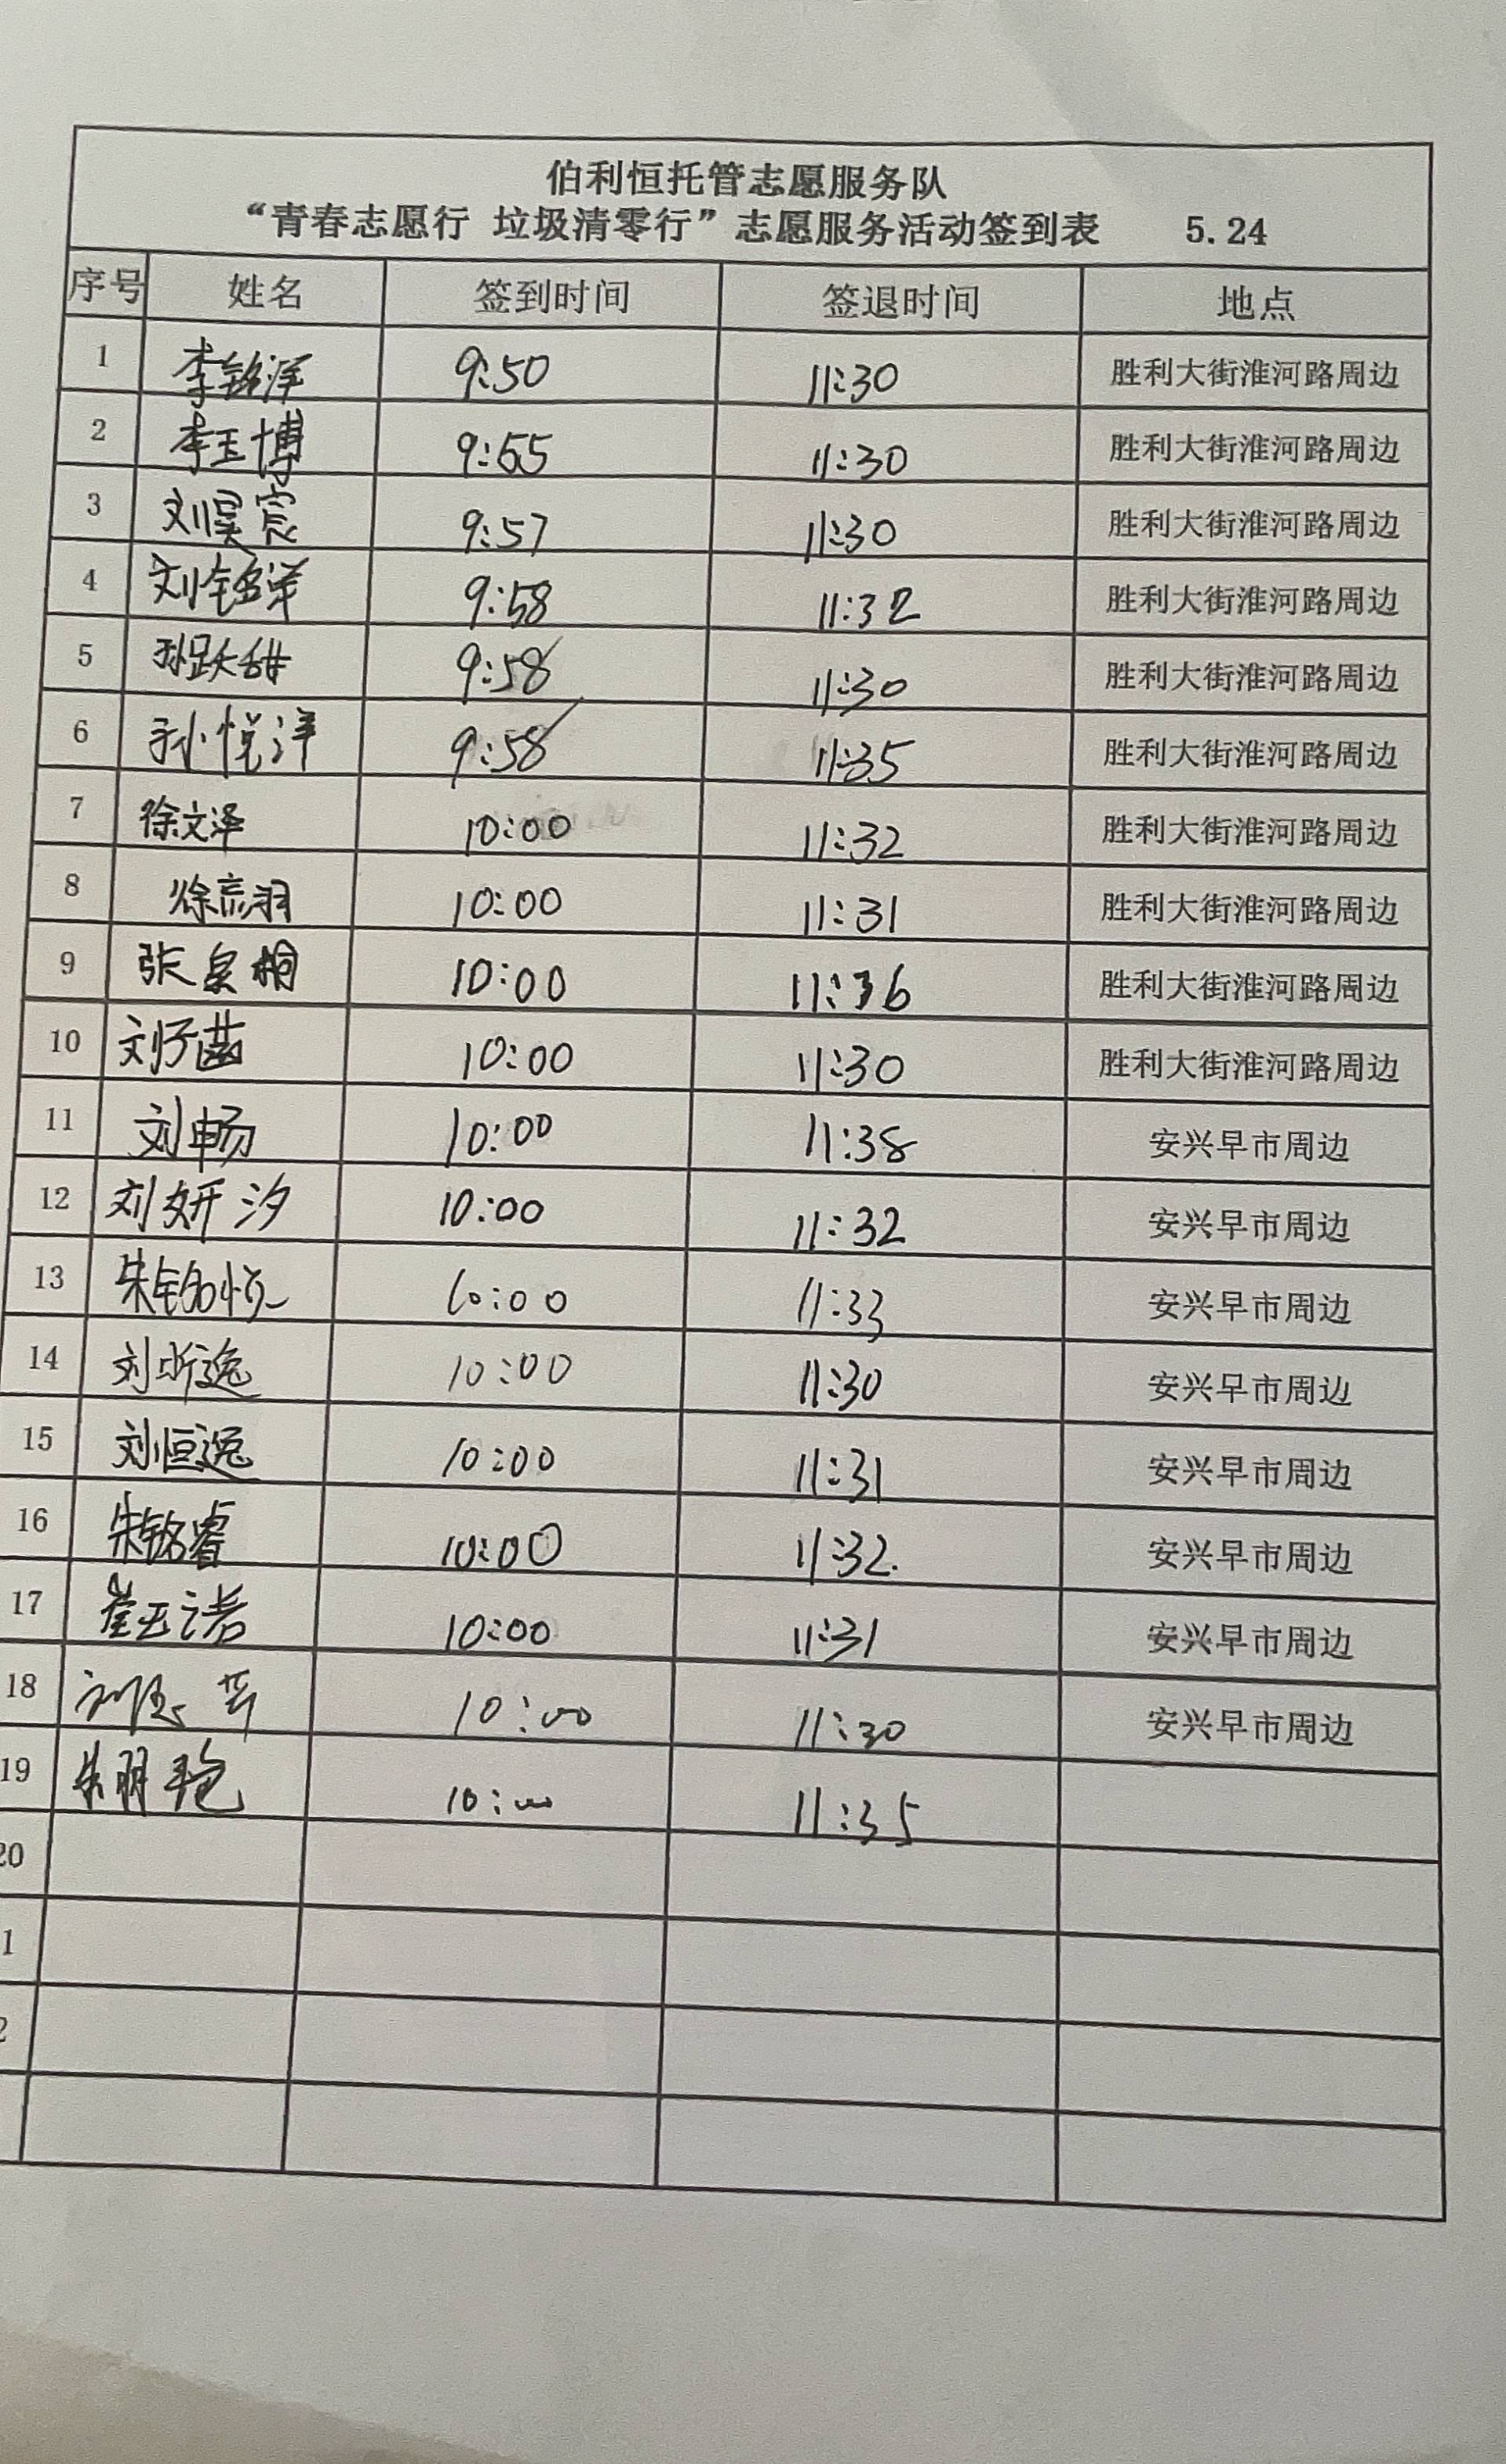 伯利恒托管志愿服务队
“青春志愿行 垃圾清零行”志愿服务活动签到表 5.24
序号 姓名 签到时间 签退时间 地点
1 李铭洋 9:50 11:30 胜利大街淮河路周边
2 李玉博 9:55 11:30 胜利大街淮河路周边
3 刘昊宸 9:57 11:30 胜利大街淮河路周边
4 刘铭洋 9:58 11:32 胜利大街淮河路周边
5 孙跃甜 9:58 11:30 胜利大街淮河路周边
6 孙悦洋 9:58 11:35 胜利大街淮河路周边
7 徐文泽 10:00 11:32 胜利大街淮河路周边
8 徐 羽 10:00 11:31 胜利大街淮河路周边
9 张 桐 10:00 11:36 胜利大街淮河路周边
10 刘子菡 10:00 11:30 胜利大街淮河路周边
11 刘畅 10:00 11:38 安兴早市周边
12 刘妍汐 10:00 11:32 安兴早市周边
13 朱铭恒 10:00 11:33 安兴早市周边
14 刘昕逸 10:00 11:30 安兴早市周边
15 刘恒逸 10:00 11:31 安兴早市周边
16 朱铭睿 10:00 11:32. 安兴早市周边
17 崔玉诺 10:00 11:31 安兴早市周边
18 刘 10:00 11:30 安兴早市周边
19 朱明艳 10:00 11:35
20
1
2